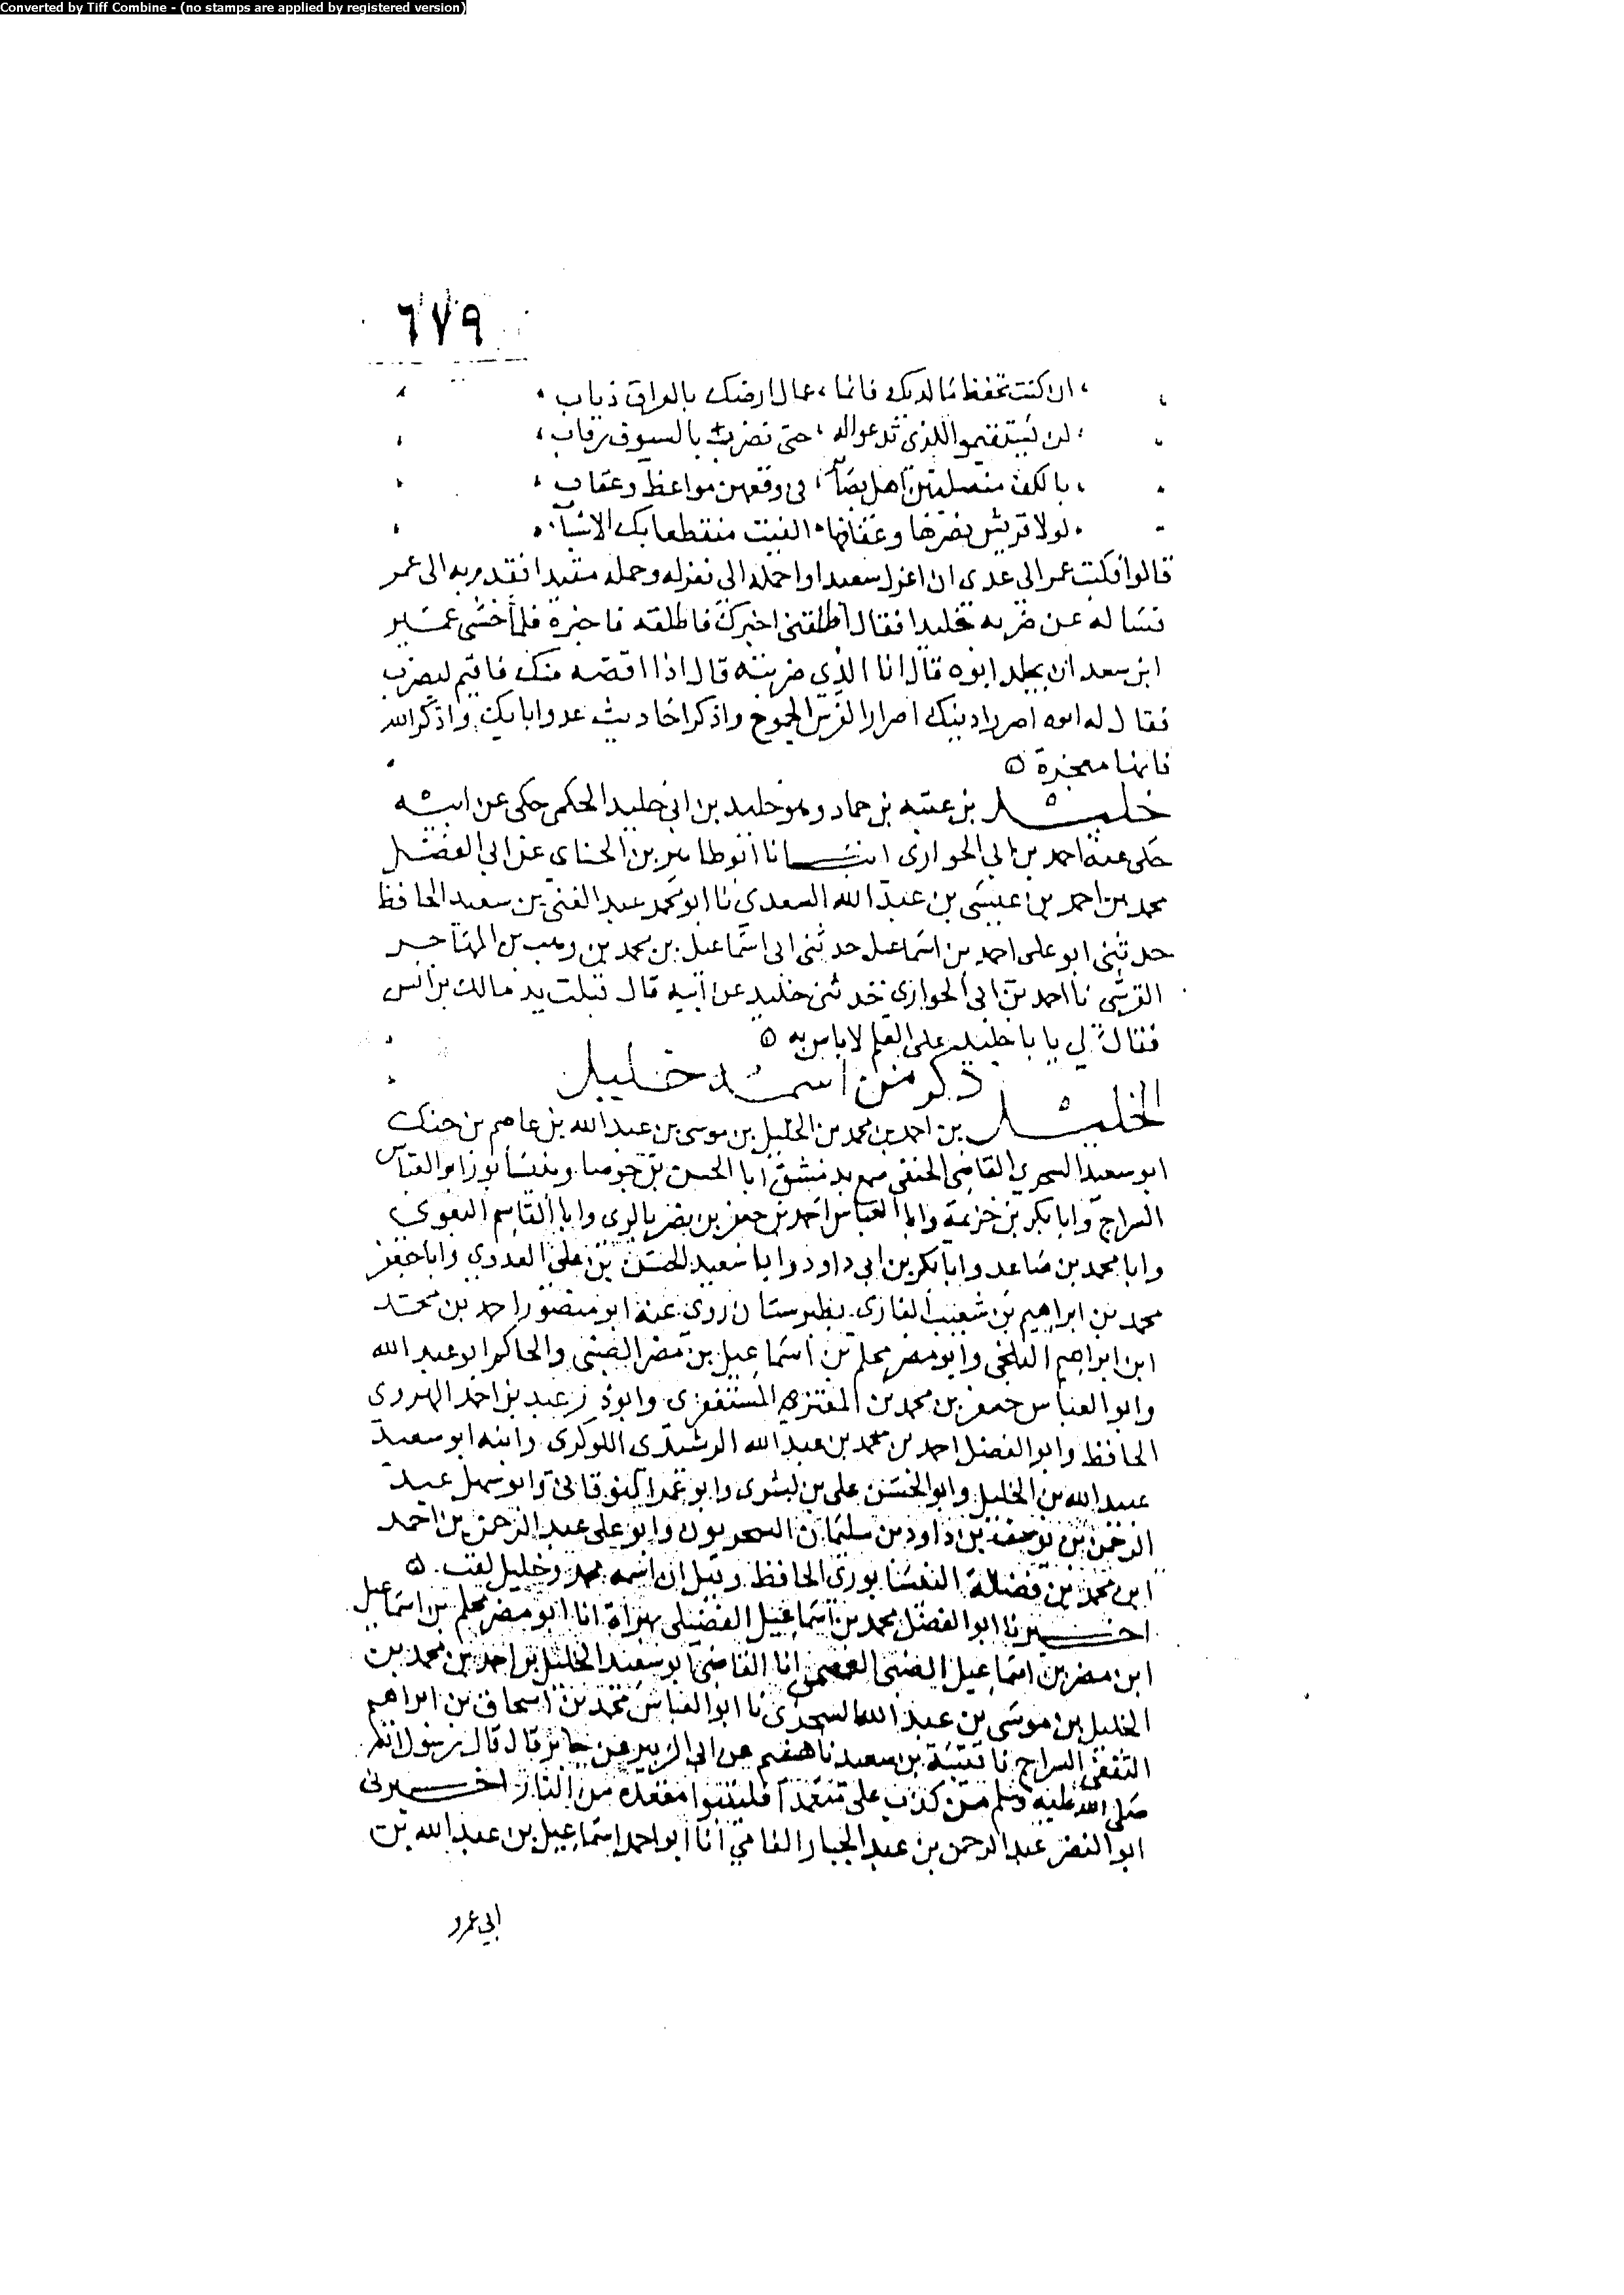 Converted by Tiff Combine - (no stamps are applied by registered version)
٦٧٩
ان كنت تحفظ ما لديك فانما ، عمال ارضك بالعراق ذياب
لن يستقيموا للذى تدعوا له ، حتى تضرب بالسيوف رقاب
بالكف منصلتين اهل بصائر ، فى وقعهن مواعظ وعقاب
لولا قريش نصرها وعفافها الفيت منقطعا بك الاسباب
قالوا فكتب عمر الى عدى ان اعزل سعيدا واحمله الى فعزله وحمله مقيدا فقدم به الى عمر
فساله عن ضربه خليدا فقال اطلقنى اخبرك فاطلقه فاخبره فلما خشى عمير
ابن سعد ان يجلد ابوه قال انا الذي ضربته قال اذا اقصه منك فاقيم ليضرب
فقال له ابوه اصرر اذنيك اصرار الفرس الجموح واذكر احاديث عد وابايك واذكر الله
فانها معجزة ه
خليد بن عتبه بن حماد وهو خليد بن ابي خليد الحكمى حكى عن ابيه
حكى عنه احمد بن ابي الحوارى انبانا ابو طاهر بن الحناى عن ابي الفضل
محمد بن احمد بن عيسى بن عبد الله السعدي نا ابو محمد عبد الغنى بن سعيد الحافظ
حدثنى ابو على احمد بن اسماعيل حدثنى ابى اسماعيل بن محمد بن وهب بن المهاجر
القرشى نا احمد بن ابى الحوارى حدثنى خليد عن ابيه قال قبلت يد مالك بن انس
فقال لي يا با خليد على العلم لا باس به ه
ذكر من اسمه خليل
الخليل بن احمد بن محمد بن الخليل بن موسى بن عبد الله بن عاصم بن جنك
ابو سعيد السجزي القاضى الحنفى سمع بدمشق ابا الحسن بن جوصا وبنيسابور ابا العباس
السراج وابا بكر بن خزيمة وابا العباس احمد بن جعفر بن نصر بالرى وابا القاسم البغوي
وابا محمد بن صاعد وابا بكر بن ابى داود وابا سعيد الحسن بن على العدوي وابا جعفر
محمد بن ابراهيم بن شعيب الغازى بطبرستان روى عنه ابو منصور احمد بن محمد
ابن ابراهيم البلخى وابو مضر محلم بن اسماعيل بن مضر الضبى والحاكم ابو عبد الله
وابو العباس جعفر بن محمد بن المعتز المستغفرى وابو ذر عبد بن احمد الهروى
الحافظ وابو الفضل احمد بن محمد بن عبد الله الرشيدى اللوكرى وابنه ابو سعيد
عبيد الله بن الخليل وابو الحسن على بن بشرى وابو عمر النوقاتى وابو سهل عبد
الرحمن بن يوسف بن داود بن سليمان السجزيون وابو على عبد الرحمن بن احمد
ابن محمد بن فضالة النيسابورى الحافظ وقيل ان اسمه محمد وخليل لقب ه
اخبرنا ابو الفضل محمد بن اسماعيل الفضيلى بهراة انا ابو مضر محلم بن اسماعيل
ابن مضر بن اسماعيل الضبى انا القاضى ابو سعيد الخليل بن احمد بن محمد بن
الخليل بن موسى بن عبد الله السجزى نا ابو العباس محمد بن اسحاق بن ابراهيم
الثقفى السراج نا قتيبة بن سعيد نا هشيم عن ابى الزبير عن جابر قال قال رسول الله
صلى الله عليه وسلم من كذب على متعمدا فليتبوا مقعده من النار اخبرنى
ابو النضر عبد الرحمن بن عبد الجبار الفامي انا ابو احمد اسماعيل بن عبد الله بن
ابي عمرو